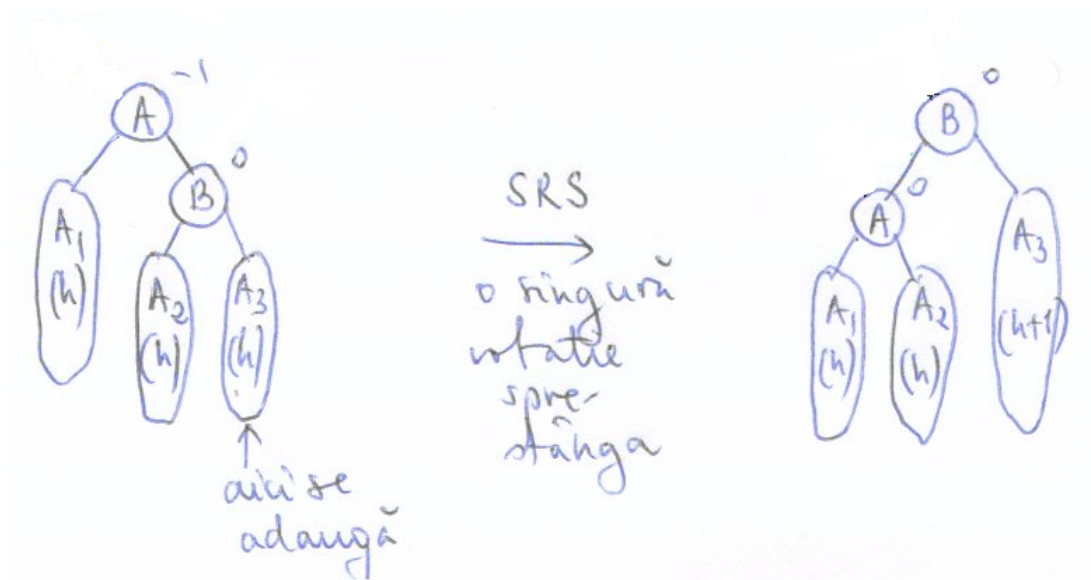 A -1
B 0
A1
(h)
A2
(h)
A3
(h)
aici se
adaugă
SRS
o singură
rotatie
spre
stânga
B 0
A 0
A1
(h)
A2
(h)
A3
(h+1)